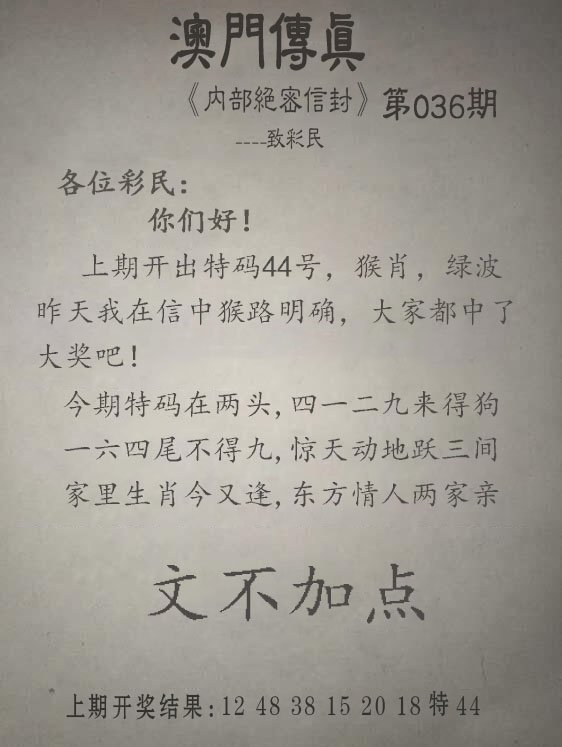 澳門傳眞
《内部絕密信封》第036期
----致彩民
各位彩民：
你们好！
上期开出特码44号，猴肖，绿波
昨天我在信中猴路明确，大家都中了
大奖吧！
今期特码在两头,四一二九来得狗
一六四尾不得九,惊天动地跃三间
家里生肖今又逢,东方情人两家亲
文不加点
上期开奖结果:12 48 38 15 20 18 特 44